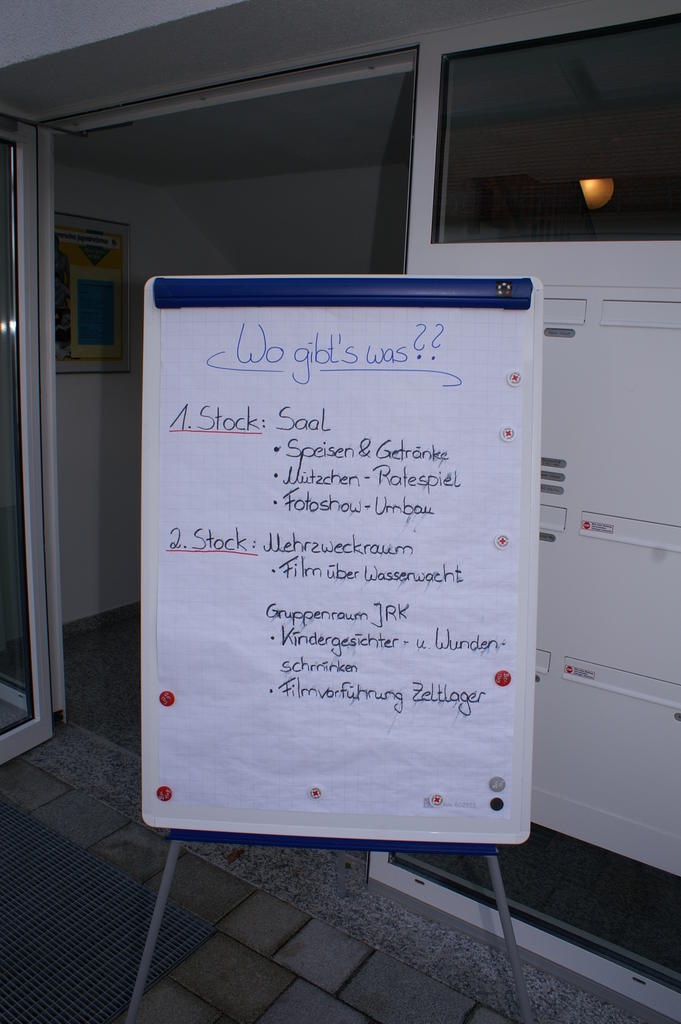 Wo gibt's was??
1. Stock: Saal
• Speisen & Getränke
• Mützchen - Ratespiel
• Fotoshow - Umbau
2. Stock: Mehrzweckraum
• Film über Wasserwacht
Gruppenraum JRK
• Kindergesichter- u. Wunden-
schminken
• Filmvorführung Zeltlager